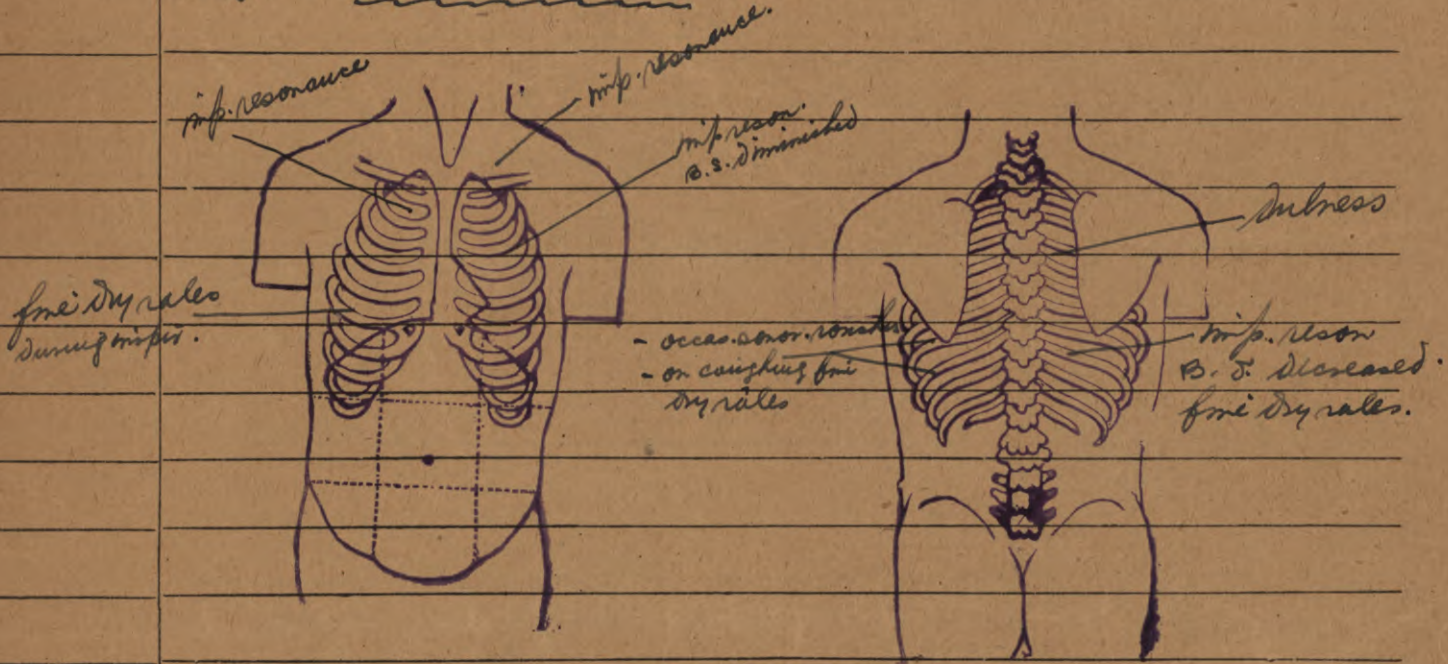 imp. resonance
imp. resonance.
imp reson.
B.S. diminished
fine dry rales
during inspir.
- occas. sonor. ronchi
- on coughing fine
dry râles
Dulness
imp. reson
B. S. decreased.
fine dry rales.